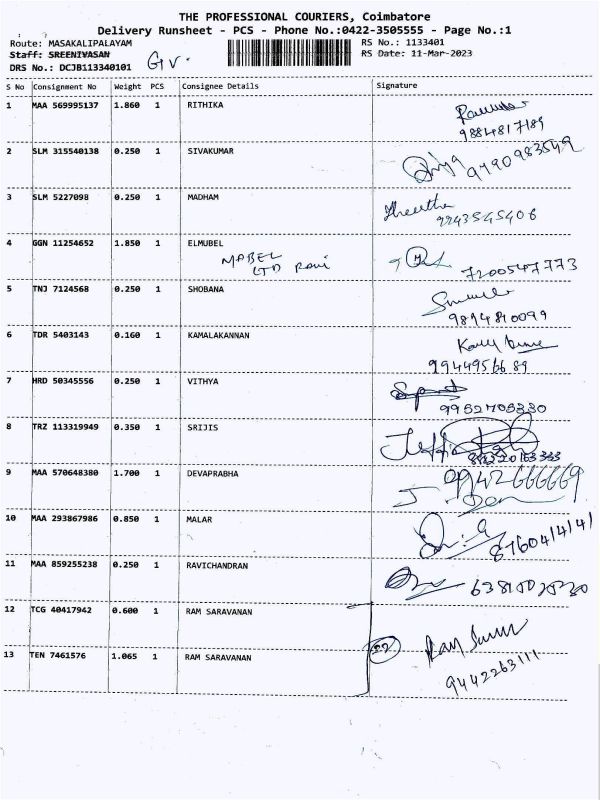 THE PROFESSIONAL COURIERS, Coimbatore
Delivery Runsheet - PCS - Phone No.:0422-3505555 - Page No.:1
Route: MASAKALIPALAYAM RS No.: 1133401
Staff: SREENIVASAN RS Date: 11-Mar-2023
DRS No.: DCJB113340101
S No Consignment No Weight PCS Consignee Details Signature
1 MAA 569995137 1.860 1 RITHIKA
9884817189
2 SLM 315540138 0.250 1 SIVAKUMAR
9790983549
3 SLM 5227098 0.250 1 MADHAM
9943545406
4 GGN 11254652 1.850 1 ELMUBEL
MABEL
LTD Ravi
7200547773
5 TNJ 7124568 0.250 1 SHOBANA
9894810099
6 TDR 5403143 0.160 1 KAMALAKANNAN
9944956689
7 HRD 50345556 0.250 1 VITHYA
9952705330
8 TRZ 113319949 0.350 1 SRIJIS
9 MAA 570648380 1.700 1 DEVAPRABHA
9942666669
10 MAA 293867986 0.850 1 MALAR
8760414141
11 MAA 859255238 0.250 1 RAVICHANDRAN
12 TCG 40417942 0.600 1 RAM SARAVANAN
13 TEN 7461576 1.065 1 RAM SARAVANAN
9442263111